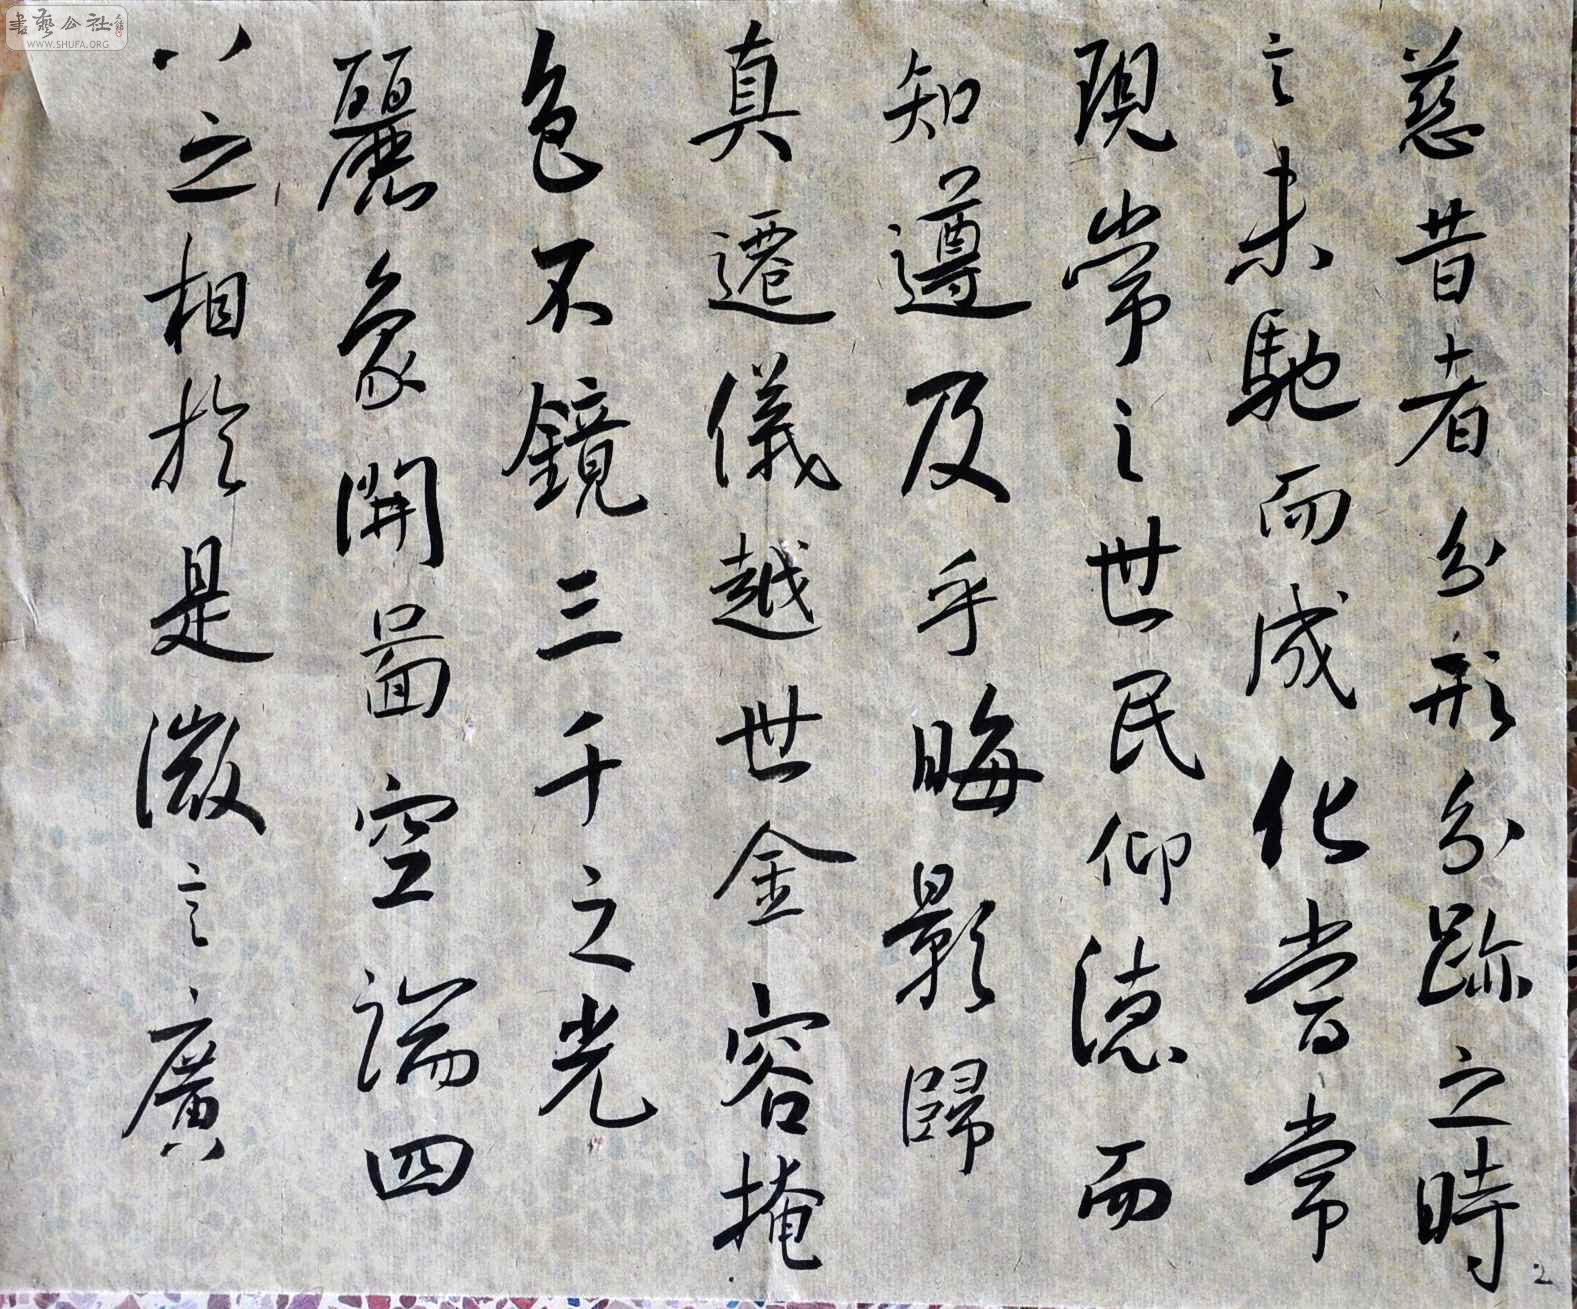 慈昔者分形分跡之時
言未馳而成化當常
現常之世民仰德而
知遵及乎晦影歸
真遷儀越世金容掩
色不鏡三千之光
麗象開圖空端四
八之相於是微言廣
2
書藝公社
WWW.SHUFA.ORG